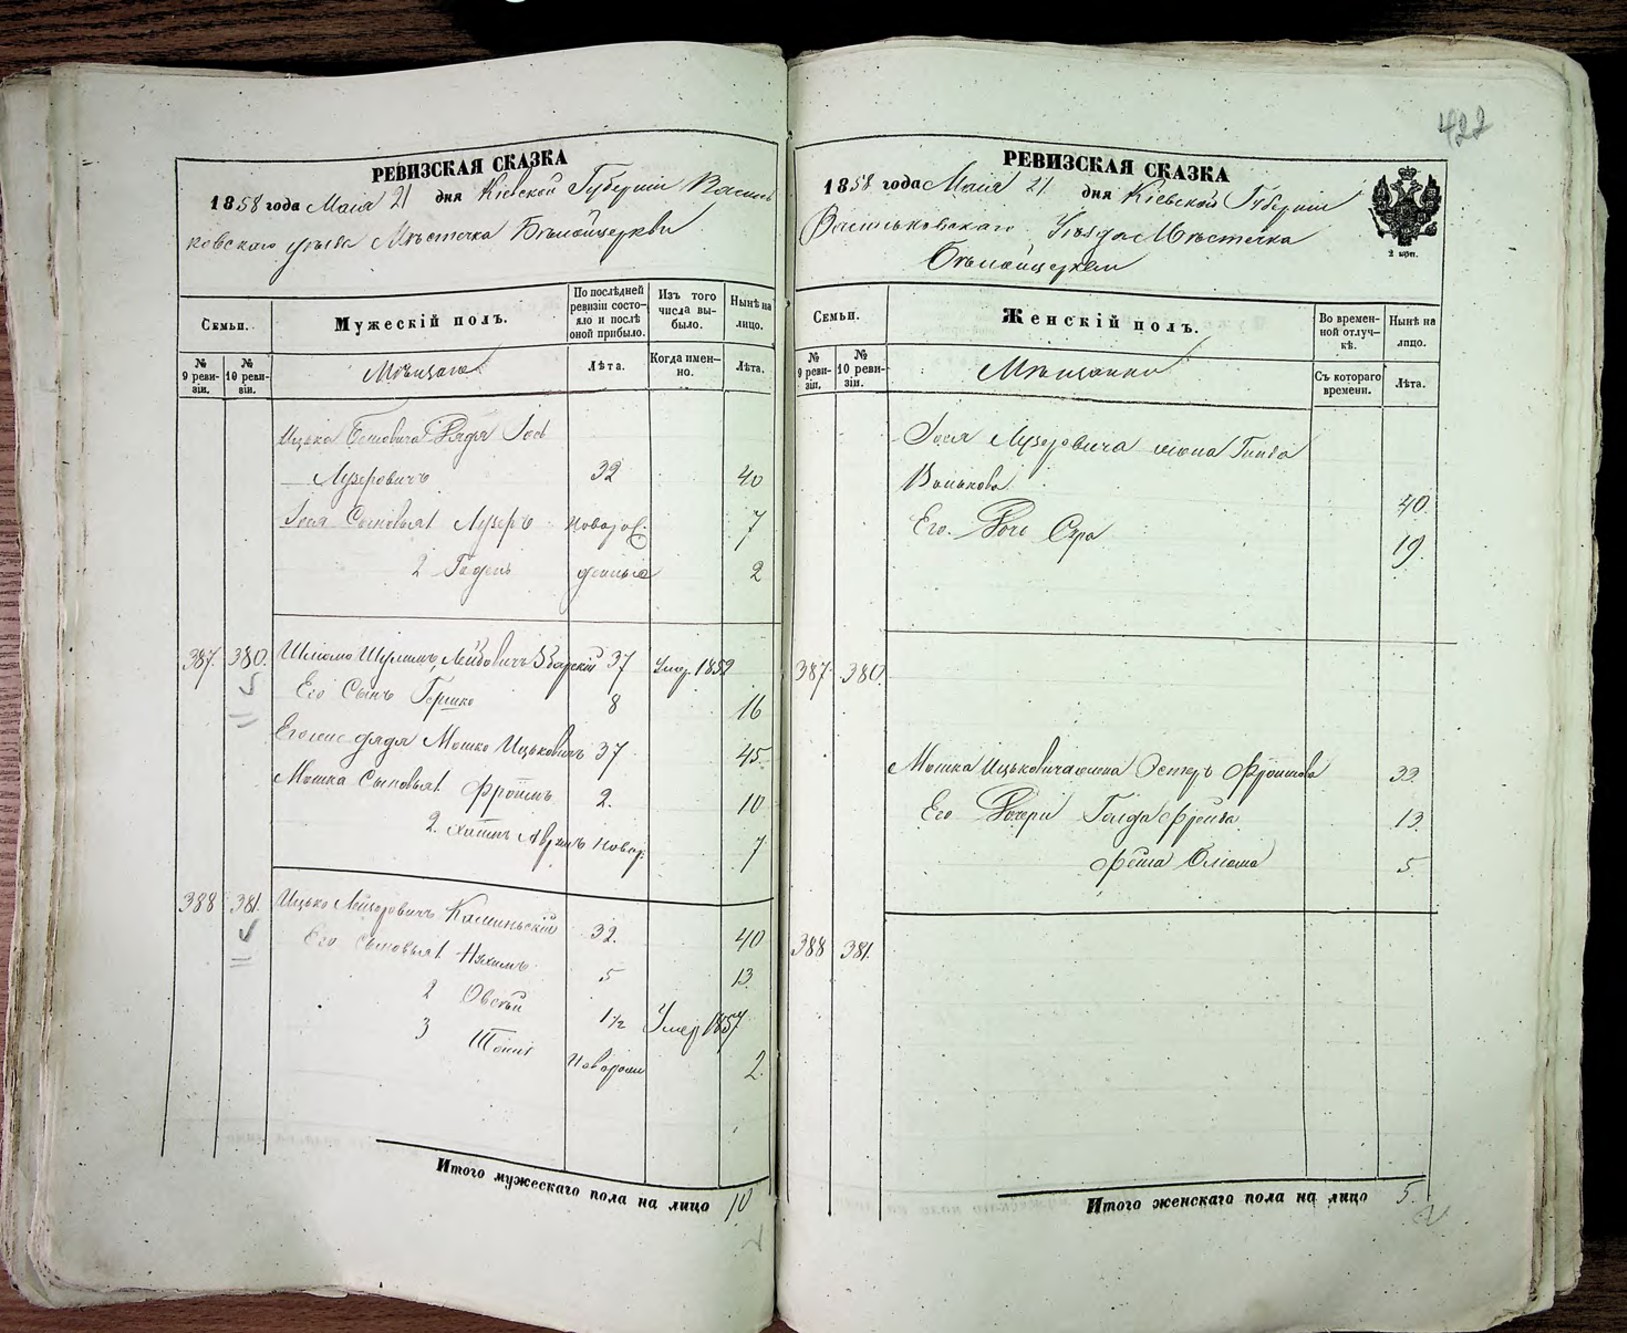 422
РЕВИЗСКАЯ СКАЗКА
1858 года Маія 21 дня Кіевской Губерніи Василь
ковскаго уѣзда Мѣстечка Бѣлойцеркви
Семьи.
Мужескій полъ.
По послѣдней ревизіи состояло и послѣ оной прибыло.
Изъ того числа выбыло.
Нынѣ на лицо.
№ 9 ревизіи.
№ 10 ревизіи.
Мѣщане
Лѣта.
Когда именно.
Лѣта.
Ицька Дядя Іось
Лузеровичъ 32 40
Іося Сыновья 1 Лузеръ новорож 7
2 Годель денные 2
387. 380. Шліомо Шулимъ Лейбовичъ Збарскій 37 Умер 1852
Его Сынъ Гершко 8 16
Его же дядя Мошко Ицьковичъ 37 45.
Мошка Сыновья 1 Фроимъ 2. 10
2. Аврумъ Новор: 7
388 381. Ицько Лейзоровичъ Каминьскій 32. 40
Его Сыновья 1 Нухимъ 5 13.
2 Овсѣй 1½ Умер 1857
3 Новорож 2.
Итого мужескаго пола на лицо 10
РЕВИЗСКАЯ СКАЗКА
1858 года Маія 21. дня Кіевской Губерніи
Васильковскаго Уѣзда Мѣстечка
Бѣлойцеркви
2 коп.
Семьи.
Женскій полъ.
Во временной отлучкѣ.
Нынѣ на лицо.
№ 9 ревизіи.
№ 10 ревизіи.
Мѣщанки
Съ котораго времени.
Лѣта.
Іося Лузеровича жена
Волькова 40.
Его Дочь Сура 19.
387. 380.
Мошка Ицьковича жена Эстеръ Фроимова 33.
Его Дочери Голда Фрейда 13.
Фейга 5.
388 381.
Итого женскаго пола на лицо 5.